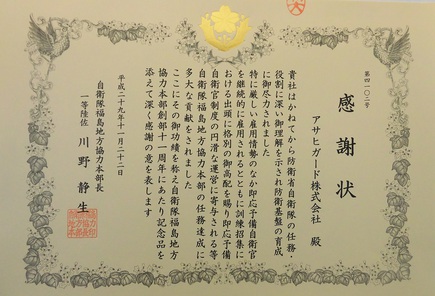 第四一〇二号
感謝状
アサヒガード株式会社 殿
貴社はかねてから防衛省自衛隊の任務・
役割に深い御理解を示され防衛基盤の育成
に御尽力されました
特に厳しい雇用情勢のなか即応予備自衛官
を継続的に雇用されるとともに訓練招集に
おける出頭に格別の御高配を賜り即応予備
自衛官制度の円滑な運営に寄与される等
自衛隊福島地方協力本部の任務達成に
多大な貢献をされました
ここにその御功績を称え自衛隊福島地方
協力本部創部十一周年にあたり記念品を
添えて深く感謝の意を表します
平成二十九年十一月二十二日
自衛隊福島地方協力本部長
一等陸佐 川野 静生